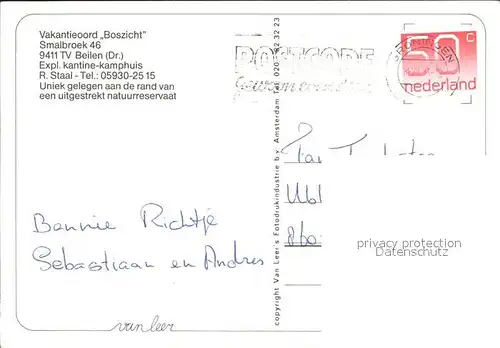 Vakantieoord „Boszicht”
Smalbroek 46
9411 TV Beilen (Dr.)
Expl. kantine-kamphuis
R. Staal - Tel.: 05930-25 15
Uniek gelegen aan de rand van
een uitgestrekt natuurreservaat
POSTCODE
GRONINGEN
50 c
nederland
copyright Van Leer's Fotodrukindustrie bv Amsterdam Tel 020
Bennie Richtje
Sebastiaan en Andres
van leer
privacy protection
Datenschutz